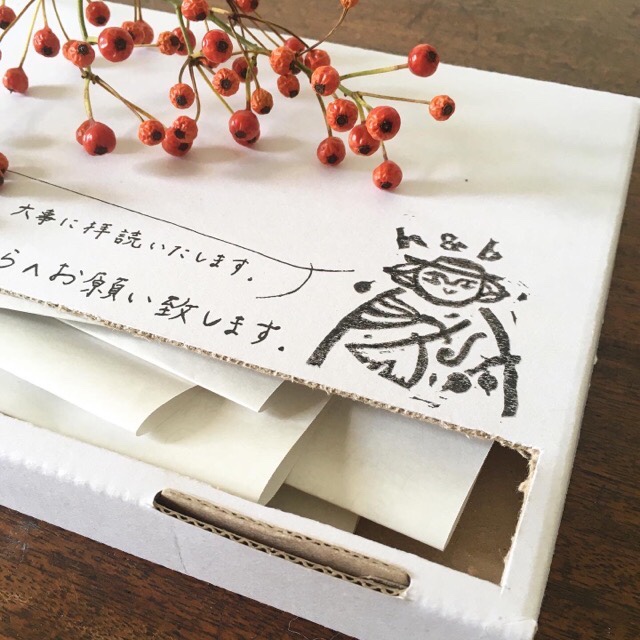 大事に拝読いたします。
らへお願い致します。
h & b